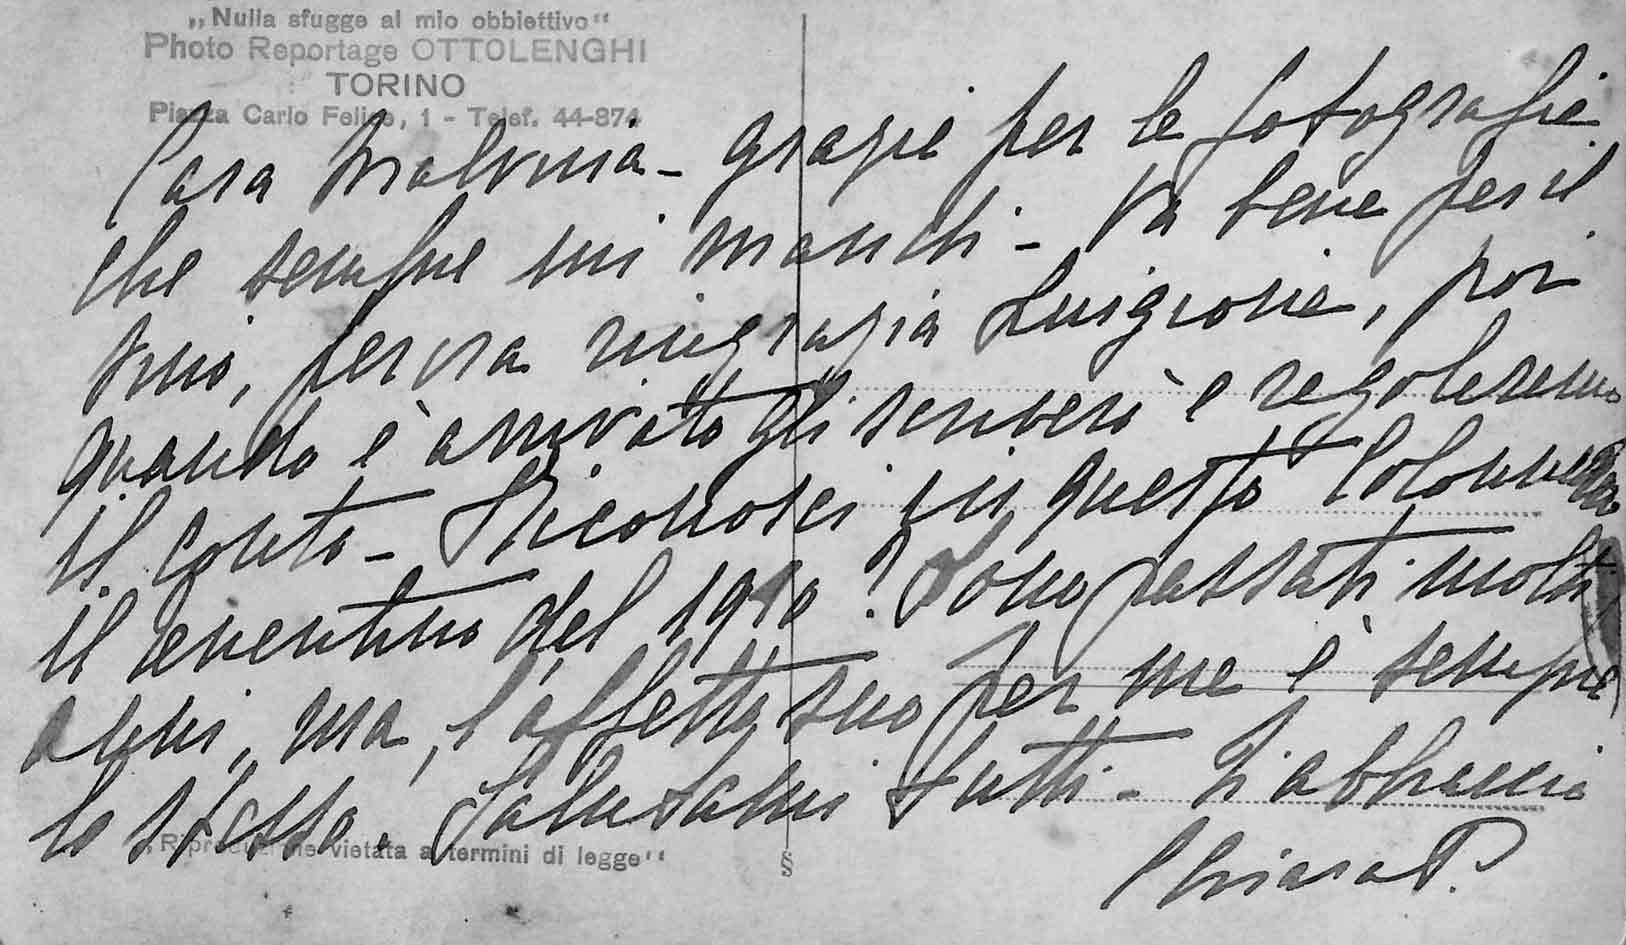 „Nulla sfugge al mio obbiettivo“
Photo Reportage OTTOLENGHI
TORINO
Piazza Carlo Felice, 1 - Telef. 44-874
Cara Malvina - grazie per le fotografie
che sempre mi mandi - Va bene per il
vino, per ora ringrazia Luigione, poi
quando è arrivato gli scriverò e regoleremo
il conto - Riconosci in questo Colonnello
il tenentino del 1910? Sono passati molti
anni, ma, l'affetto suo per me è sempre
lo stesso. Salutami tutti - Ti abbraccio
Chiara P.
„Riproduzione vietata a termini di legge“
§